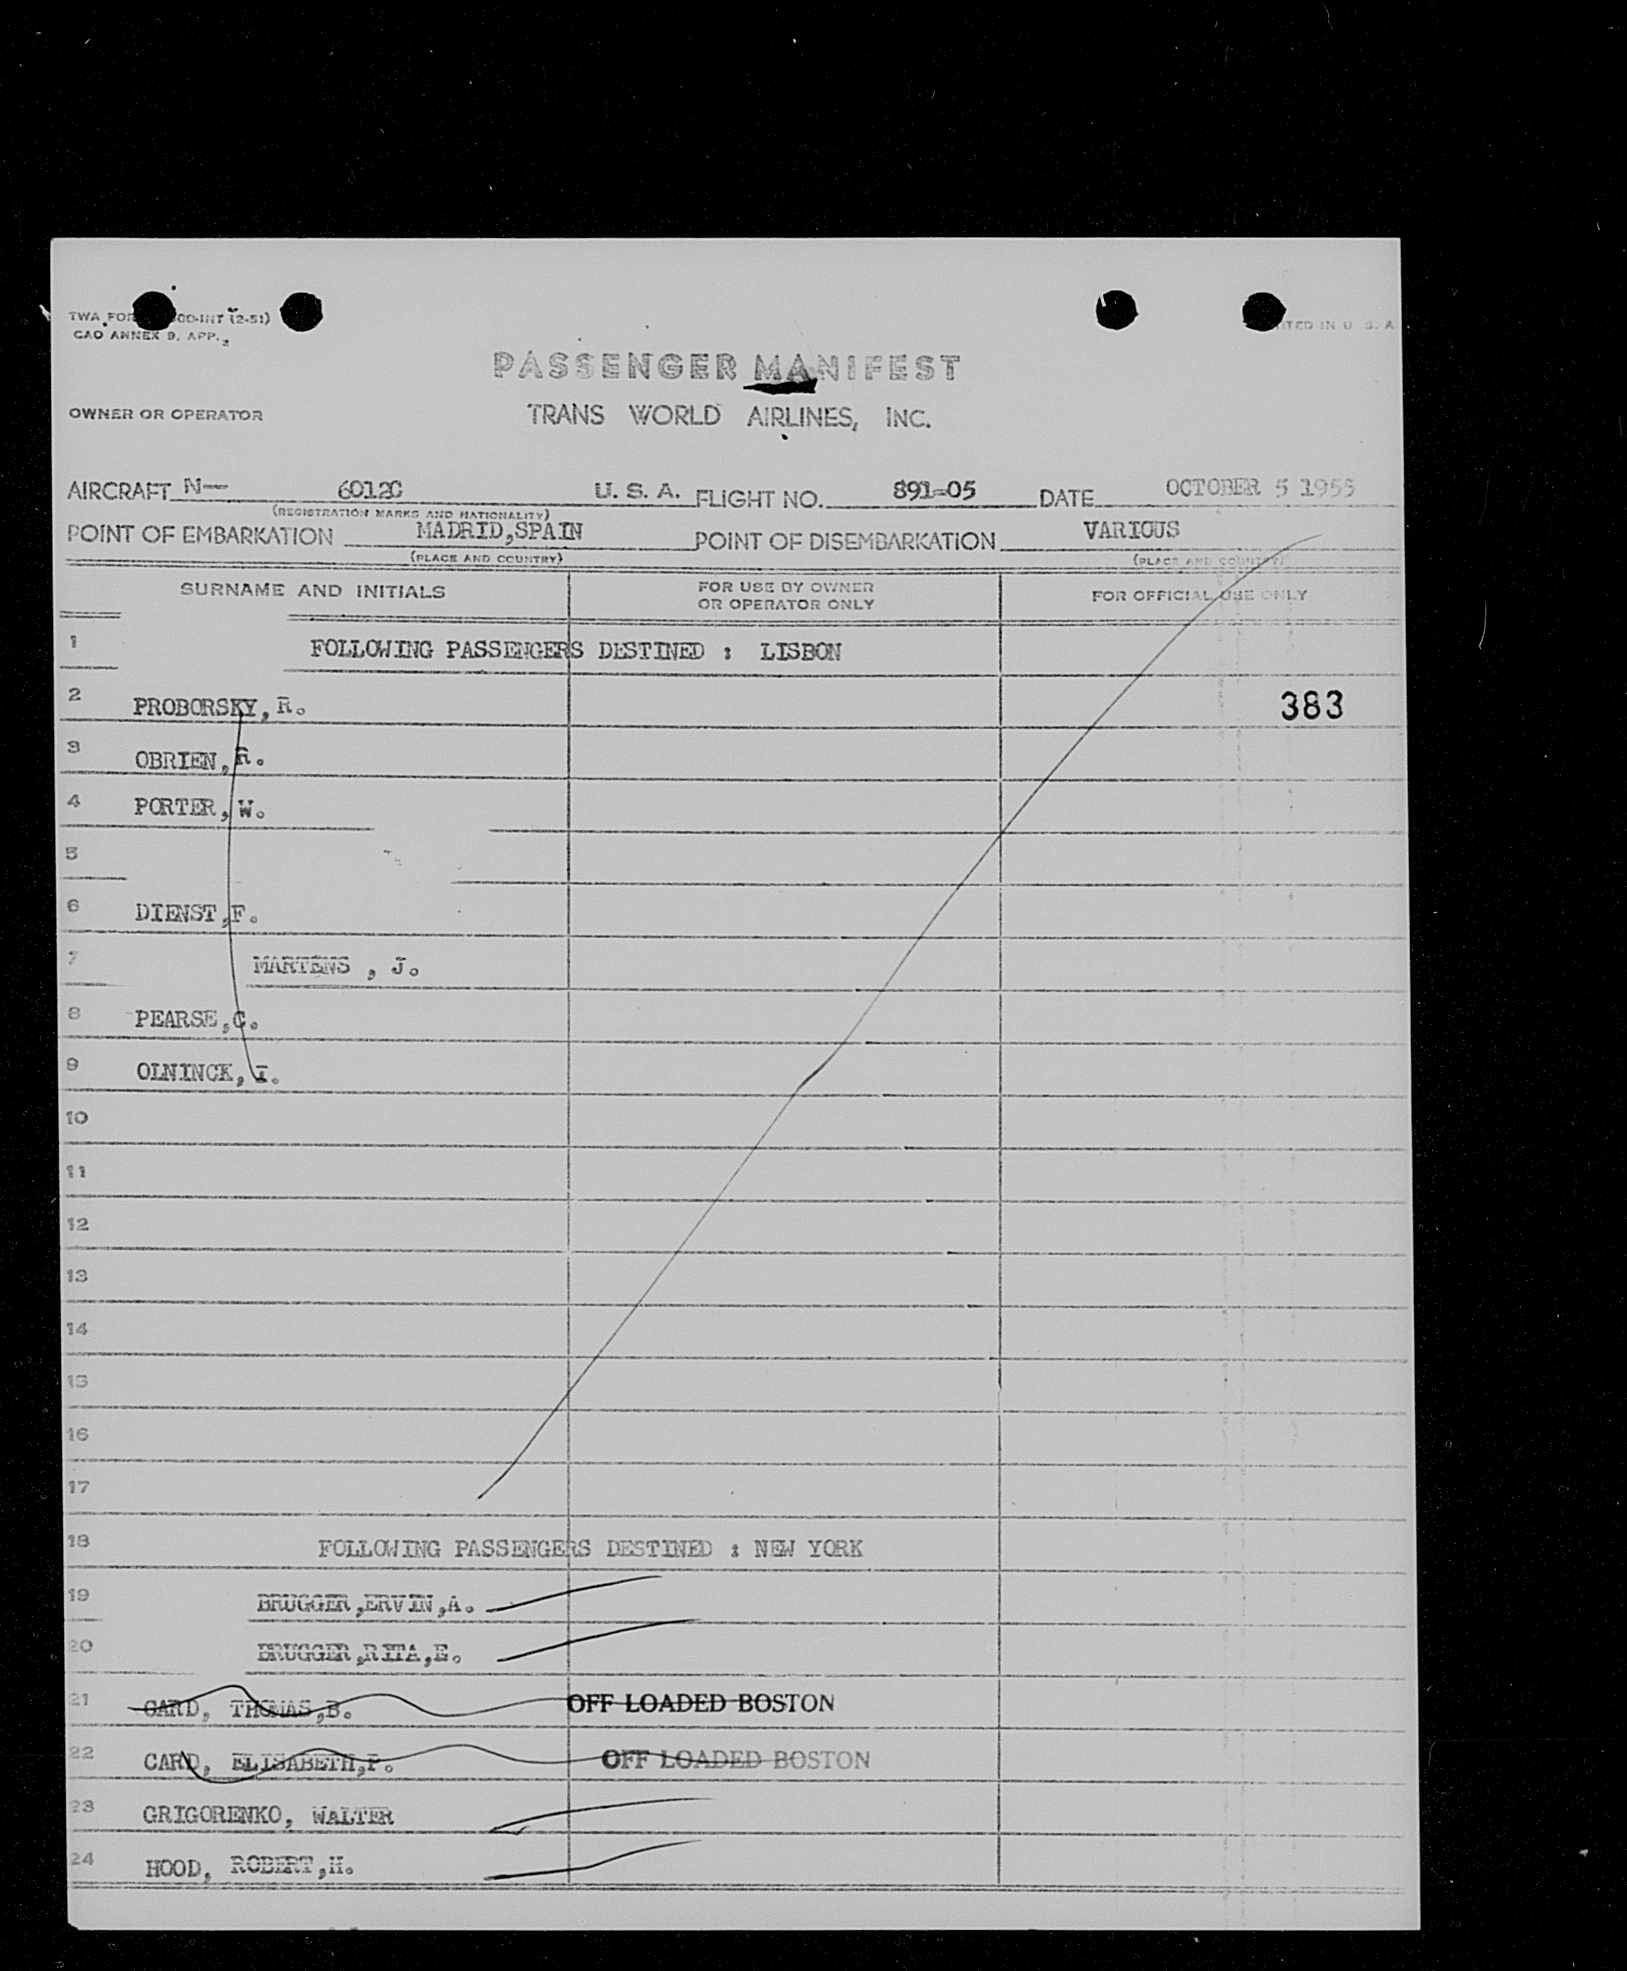 TWA FOR 00-INT (2-51)
CAO ANNEX 9, APP. 2
TED IN U. S. A
PASSENGER MANIFEST
OWNER OR OPERATOR TRANS WORLD AIRLINES, INC.
AIRCRAFT N— 6012C U. S. A. FLIGHT NO. 891-05 DATE OCTOBER 5 1955
(REGISTRATION MARKS AND NATIONALITY)
POINT OF EMBARKATION MADRID,SPAIN POINT OF DISEMBARKATION VARIOUS
(PLACE AND COUNTRY) (PLACE AND COUNTRY)
SURNAME AND INITIALS FOR USE BY OWNER OR OPERATOR ONLY FOR OFFICIAL USE ONLY
1 FOLLOWING PASSENGERS DESTINED : LISBON
2 PROBORSKY, R. 383
3 OBRIEN,R.
4 PORTER,W.
5
6 DIENST,F.
7 MARTENS , J.
8 PEARSE,C.
9 OLNINCK,I.
10
11
12
13
14
15
16
17
18 FOLLOWING PASSENGERS DESTINED : NEW YORK
19 BRUGGER,ERVIN,A.
20 BRUGGER,RITA,E.
21 CARD, THOMAS,B. OFF LOADED BOSTON
22 CARD, ELISABETH,P. OFF LOADED BOSTON
23 GRIGORENKO, WALTER
24 HOOD, ROBERT,H.